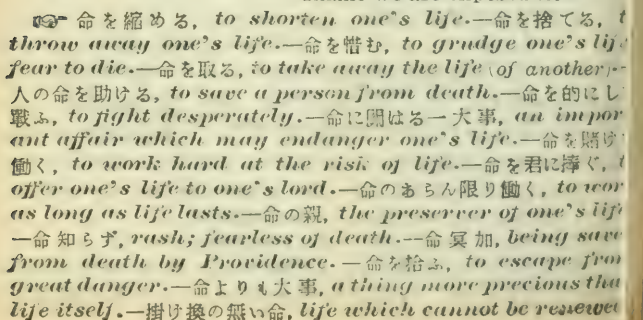 ☞ 命を縮める, to shorten one's life.—命を捨てる, t
throw away one's life.—命を惜む, to grudge one's lif
fear to die.—命を取る, to take away the life (of another).-
人の命を助ける, to save a person from death.—命を的にし
戰ふ, to fight desperately.—命に關はる一大事, an impor
ant affair which may endanger one's life.—命を賭け
働く, to work hard at the risk of life.—命を君に捧ぐ, t
offer one's life to one's lord.—命のあらん限り働く, to wor
as long as life lasts.—命の親, the preserver of one's life
—命知らず, rash; fearless of death.--命冥加, being save
from death by Providence.—命を拾ふ, to escape from
great danger.—命よりも大事, a thing more precious tha
life itself.—掛け換の無い命, life which cannot be renewed